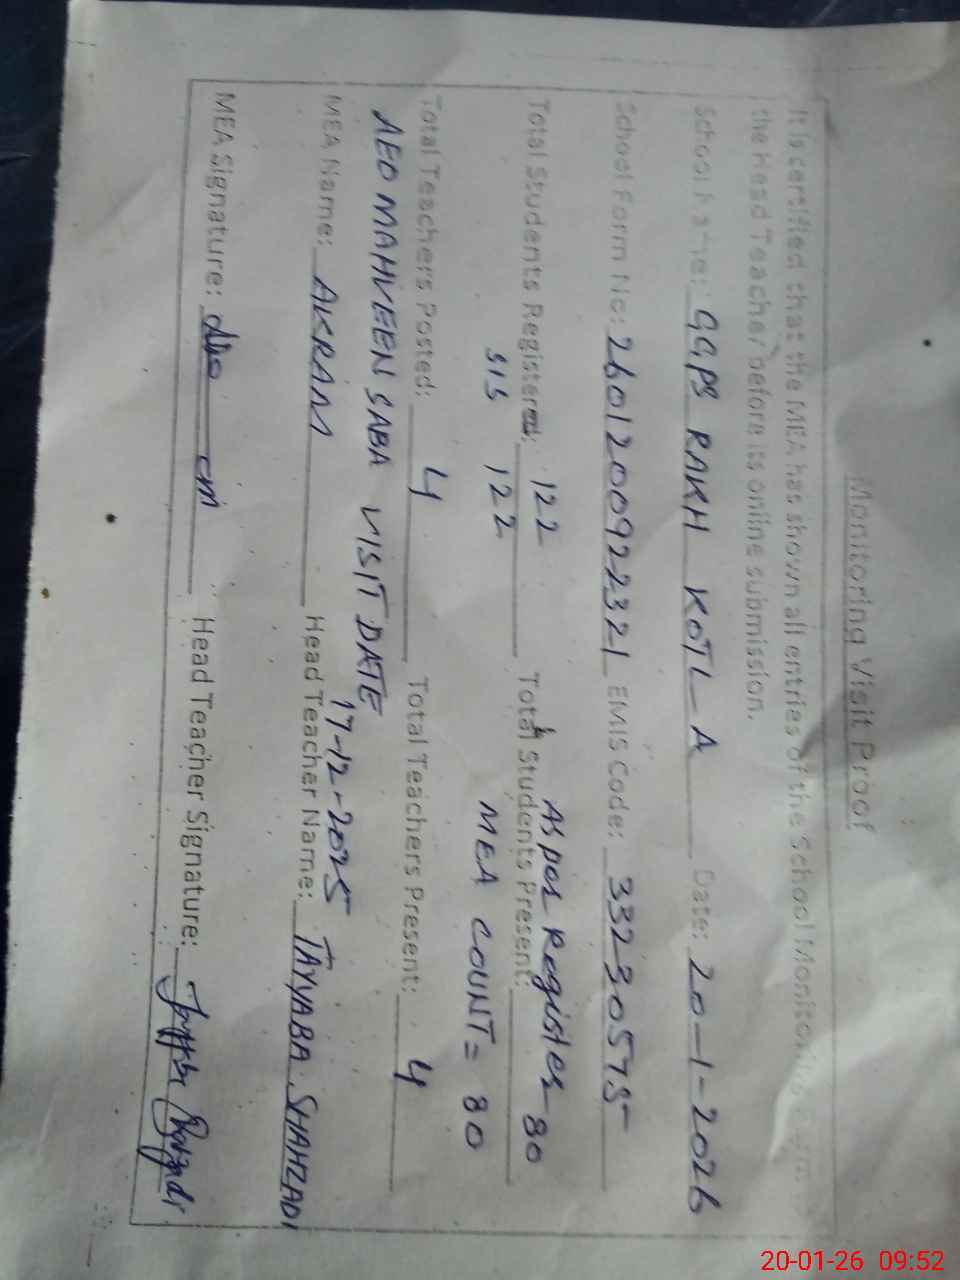 Monitoring Visit Proof
It is certified that the MEA has shown all entries of the School Monitoring Form to
the Head Teacher before its online submission.
School Name: GGPS RAKH KOTL A Date: 20-1-2026
School Form No: 2601200922321 EMIS Code: 33230575
As per Register 80
Total Students Registered: 122 Total Students Present:
SIS 122 MEA COUNT = 80
Total Teachers Posted: 4 Total Teachers Present: 4
AEO MAHVEEN SABA VISIT DATE 17-12-2025
MEA Name: AKRAM Head Teacher Name: TAYYABA SHAHZADI
MEA Signature: Head Teacher Signature:
20-01-26 09:52